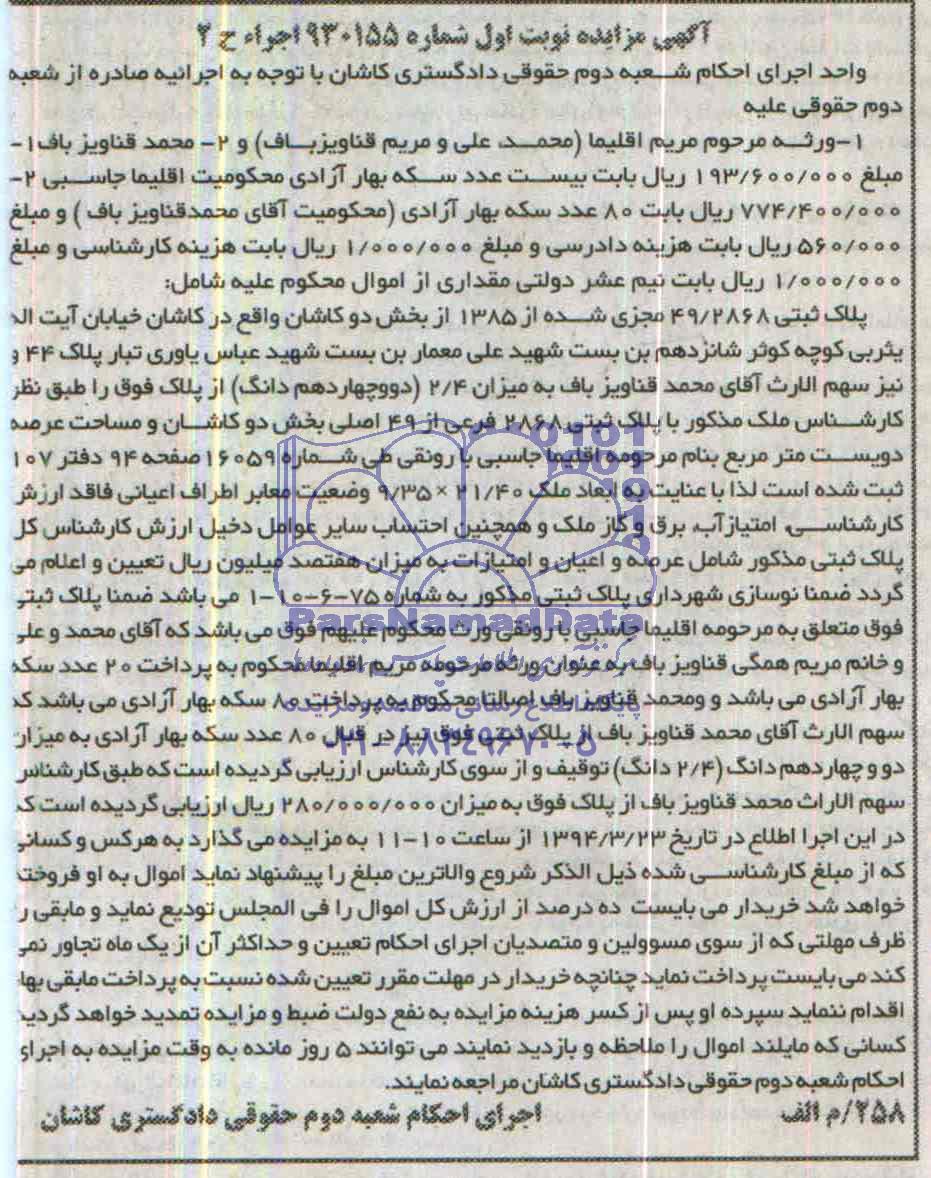 آگهی مزایده نوبت اول شماره ۹۳۰۱۵۵ اجراء ح ۲
واحد اجرای احکام شعبه دوم حقوقی دادگستری کاشان با توجه به اجرائیه صادره از شعبه
دوم حقوقی علیه
۱-ورثه مرحوم مریم اقلیما (محمد، علی و مریم قناویزباف) و ۲- محمد قناویز باف۱-
مبلغ ۱۹۳/۶۰۰/۰۰۰ ریال بابت بیست عدد سکه بهار آزادی محکومیت اقلیما جاسبی ۲-
۷۷۴/۴۰۰/۰۰۰ ریال بابت ۸۰ عدد سکه بهار آزادی (محکومیت آقای محمدقناویز باف ) و مبلغ
۵۶۰/۰۰۰ ریال بابت هزینه دادرسی و مبلغ ۱/۰۰۰/۰۰۰ ریال بابت هزینه کارشناسی و مبلغ
۱/۰۰۰/۰۰۰ ریال بابت نیم عشر دولتی مقداری از اموال محکوم علیه شامل:
پلاک ثبتی ۴۹/۲۸۶۸ مجزی شده از ۱۳۸۵ از بخش دو کاشان واقع در کاشان خیابان آیت اله
یثربی کوچه کوثر شانزدهم بن بست شهید علی معمار بن بست شهید عباس یاوری تبار پلاک ۴۴ و
نیز سهم الارث آقای محمد قناویز باف به میزان ۲/۴ (دووچهاردهم دانگ) از پلاک فوق را طبق نظر
کارشناس ملک مذکور با پلاک ثبتی ۲۸۶۸ فرعی از ۴۹ اصلی بخش دو کاشان و مساحت عرصه
دویست متر مربع بنام مرحومه اقلیما جاسبی با رونقی طی شماره ۱۶۰۵۹ صفحه ۹۴ دفتر ۱۰۷
ثبت شده است لذا با عنایت به ابعاد ملک ۲۱/۴۰ × ۹/۳۵ وضعیت معابر اطراف اعیانی فاقد ارزش
کارشناسی، امتیاز آب، برق و گاز ملک و همچنین احتساب سایر عوامل دخیل ارزش کارشناس کل
پلاک ثبتی مذکور شامل عرصه و اعیان و امتیازات به میزان هفتصد میلیون ریال تعیین و اعلام می
گردد ضمنا نوسازی شهرداری پلاک ثبتی مذکور به شماره ۷۵-۶-۱۰-۱ می باشد ضمنا پلاک ثبتی
فوق متعلق به مرحومه اقلیما جاسبی با رونقی ورث محکوم علیهم فوق می باشد که آقای محمد و علی
و خانم مریم همگی قناویز باف به عنوان ورثه مرحومه مریم اقلیما محکوم به پرداخت ۲۰ عدد سکه
بهار آزادی می باشد و ومحمد قناویز باف اصالتا محکوم به پرداخت ۸۰ سکه بهار آزادی می باشد که
سهم الارث آقای محمد قناویز باف از پلاک ثبتی فوق نیز در قبال ۸۰ عدد سکه بهار آزادی به میزان
دو و چهاردهم دانگ (۲/۴ دانگ) توقیف و از سوی کارشناس ارزیابی گردیده است که طبق کارشناس
سهم الاراث محمد قناویز باف از پلاک فوق به میزان ۲۸۰/۰۰۰/۰۰۰ ریال ارزیابی گردیده است که
در این اجرا اطلاع در تاریخ ۱۳۹۴/۳/۲۳ از ساعت ۱۰-۱۱ به مزایده می گذارد به هرکس و کسانی
که از مبلغ کارشناسی شده ذیل الذکر شروع والاترین مبلغ را پیشنهاد نماید اموال به او فروخته
خواهد شد خریدار می بایست ده درصد از ارزش کل اموال را فی المجلس تودیع نماید و مابقی ر
ظرف مهلتی که از سوی مسوولین و متصدیان اجرای احکام تعیین و حداکثر آن از یک ماه تجاور نمی
کند می بایست پرداخت نماید چنانچه خریدار در مهلت مقرر تعیین شده نسبت به پرداخت مابقی بها
اقدام ننماید سپرده او پس از کسر هزینه مزایده به نفع دولت ضبط و مزایده تمدید خواهد گردید
کسانی که مایلند اموال را ملاحظه و بازدید نمایند می توانند ۵ روز مانده به وقت مزایده به اجرای
احکام شعبه دوم حقوقی دادگستری کاشان مراجعه نمایند.
۲۵۸/م الف
اجرای احکام شعبه دوم حقوقی دادگستری کاشان
ParsNamadData
۰۲۱-۸۸۳۴۹۶۷۰-۵